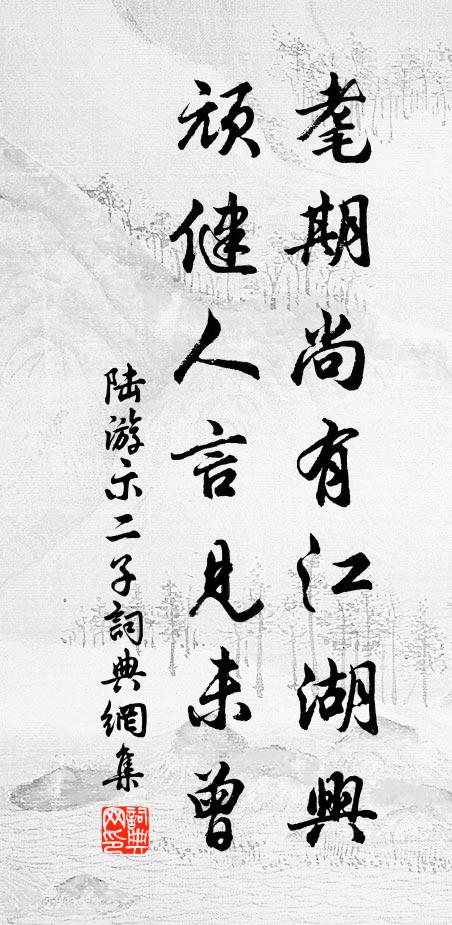 耄期尚有江湖興
頑健人言見未曾
陆游示二子詞典網集
詞典网印